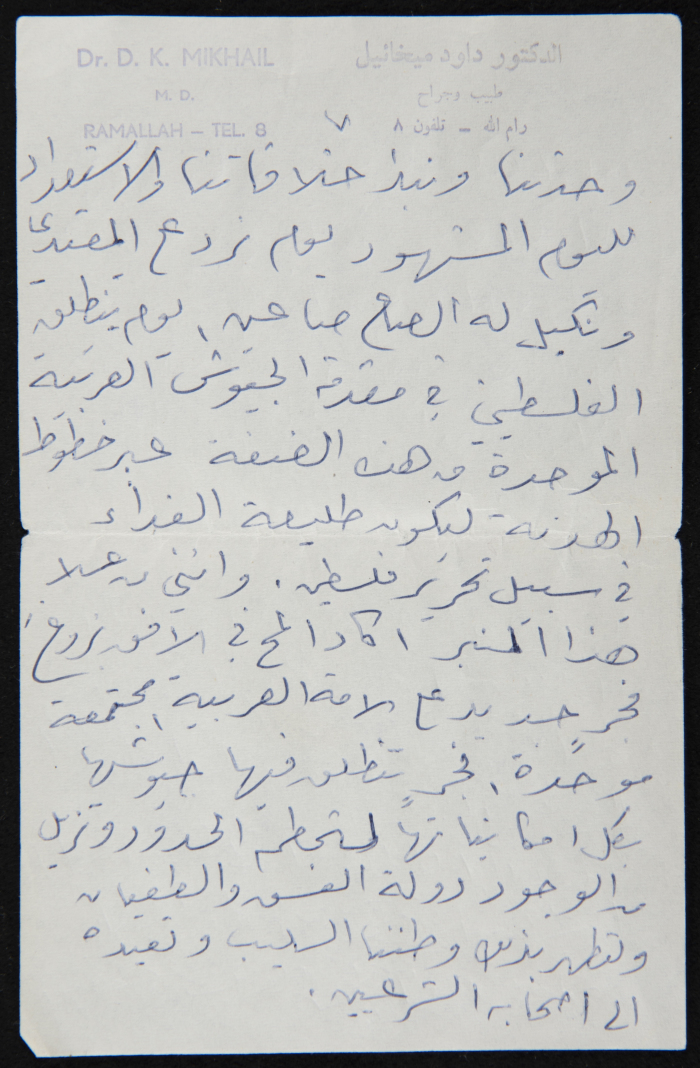 Dr. D. K. MIKHAIL
الدكتور داود ميخائيل
M. D.
طبيب وجراح
RAMALLAH – TEL. 8
رام الله – تلفون ٨
٧
وحدتنا ونبذ خلافاتنا والاستعداد
لليوم المشهود يوم نردع المعتدي
ونكيل له الصاع صاعين، يوم ينطلق
الفلسطيني في مقدمة الجيوش العربية
الموحدة من هذه الضفة عبر خطوط
الهدنة ليكون طليعة الفداء
في سبيل تحرير فلسطين. وانني من على
هذا المنبر اكاد المح في الافق بزوغ
فجر جديد مع الامة العربية مجتمعة
موحدة، فجر تنطلق فيها جيوشها
بكل امكانياتها لتحطم الحدود وتزيل
من الوجود دولة الفسق والطغيان
وتطهر بذلك وطننا السليب وتعيده
الى اصحابه الشرعيين.